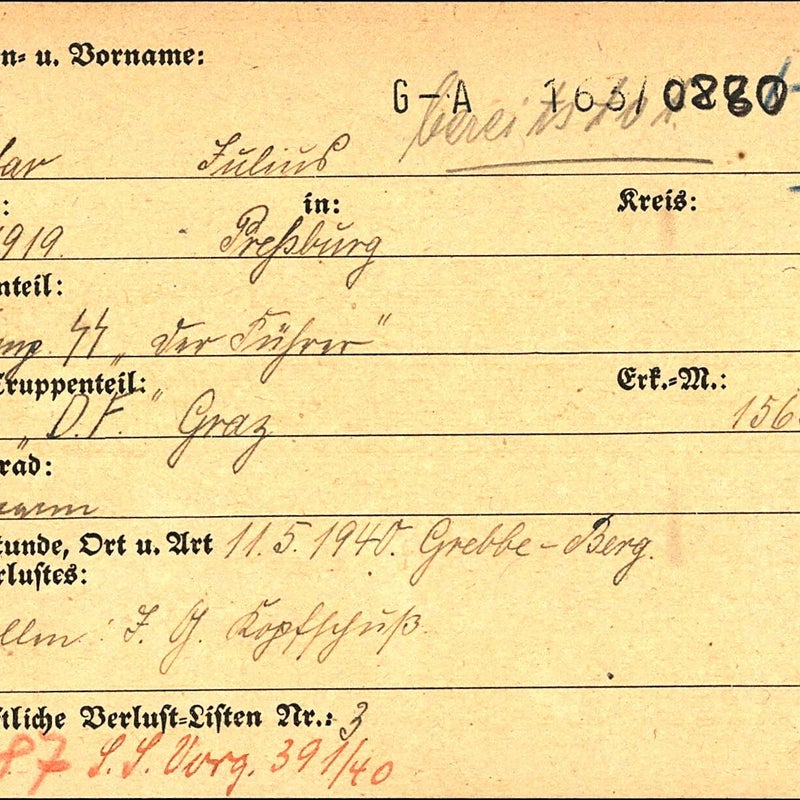 n- u. Vorname:
G-A 163/0880
bereits tot
lar Julius
: in: Kreis:
1919. Preßburg
nteil:
mp. SS „der Führer"
Truppenteil: Erk.-M.:
„D.F." Graz 156
rad:
tunde, Ort u. Art 11.5.1940. Grebbe-Berg.
rlustes:
llen: I. G. Kopfschuß.
tliche Verlust-Listen Nr.: 3
87 S.S. Vorg. 391/40